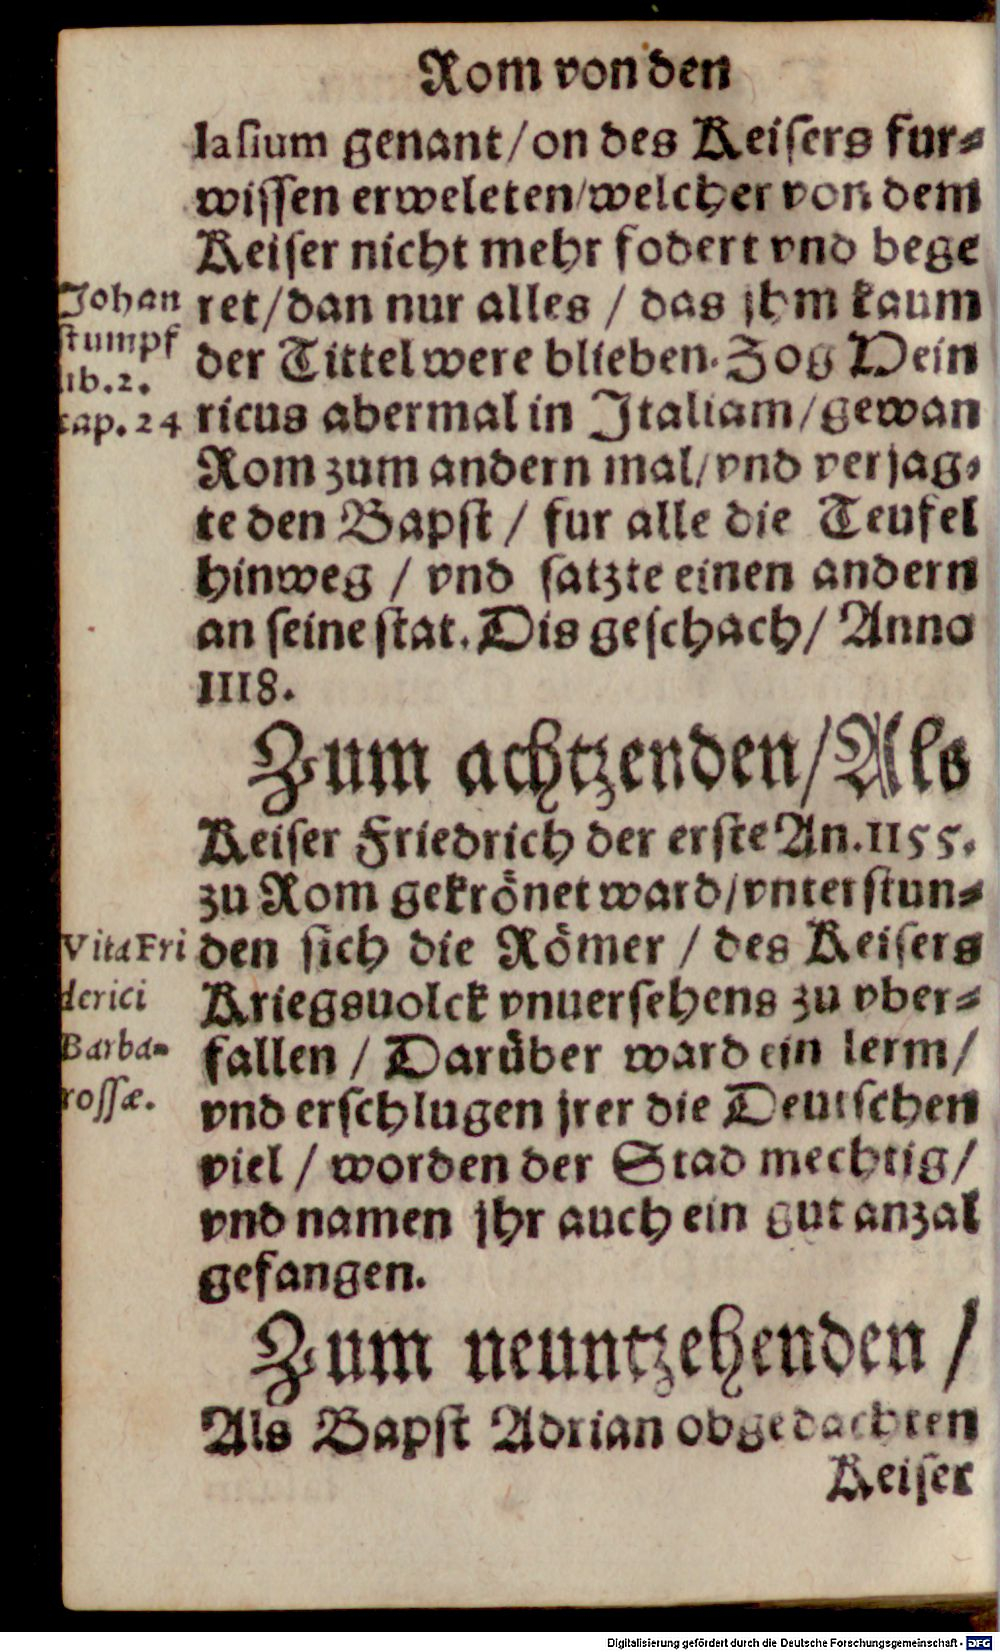 Rom von den
lasium genant / on des Keisers fur⸗
wissen erweleten / welcher von dem
Keiser nicht mehr fodert vnd bege
ret / dan nur alles / das jhm kaum
der Tittel were blieben. Zog Hein
ricus abermal in Italiam / gewan
Rom zum andern mal / vnd verjag⸗
te den Bapst / fur alle die Teufel
hinweg / vnd satzte einen andern
an seine stat. Dis geschach / Anno
1118.
Johan
stumpf
lib.2.
cap. 24
Zum achtzenden / Als
Keiser Friedrich der erste An. 1155.
zu Rom gekrönet ward / vnterstun⸗
den sich die Römer / des Keisers
Kriegsuolck vnuersehens zu vber⸗
fallen / Darüber ward ein lerm /
vnd erschlugen jrer die Deutschen
viel / worden der Stad mechtig /
vnd namen jhr auch ein gut anzal
gefangen.
Vita Fri
derici
Barba⸗
rossæ.
Zum neuntzehenden /
Als Bapst Adrian obgedachten
Keiser
Digitalisierung gefördert durch die Deutsche Forschungsgemeinschaft - DFG